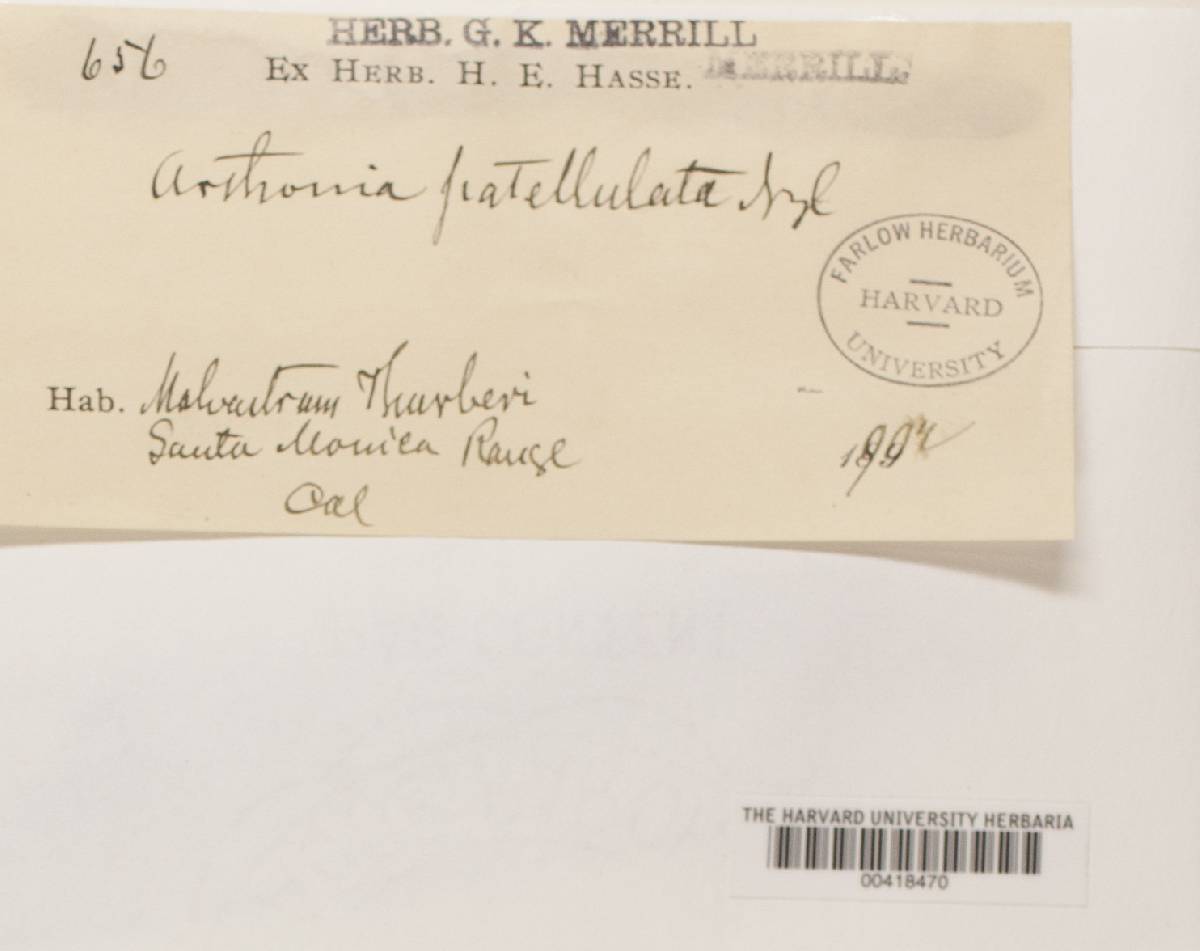 HERB. G. K. MERRILL
656
EX HERB. H. E. HASSE. MERRILL
Arthonia patellulata Nyl
FARLOW HERBARIUM
HARVARD
UNIVERSITY
Hab. Malvastrum Thurberi
Santa Monica Range
Cal
THE HARVARD UNIVERSITY HERBARIA
00418470